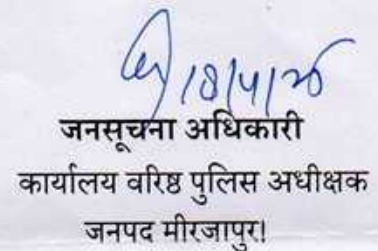 18/4/26
जनसूचना अधिकारी
कार्यालय वरिष्ठ पुलिस अधीक्षक
जनपद मीरजापुर।